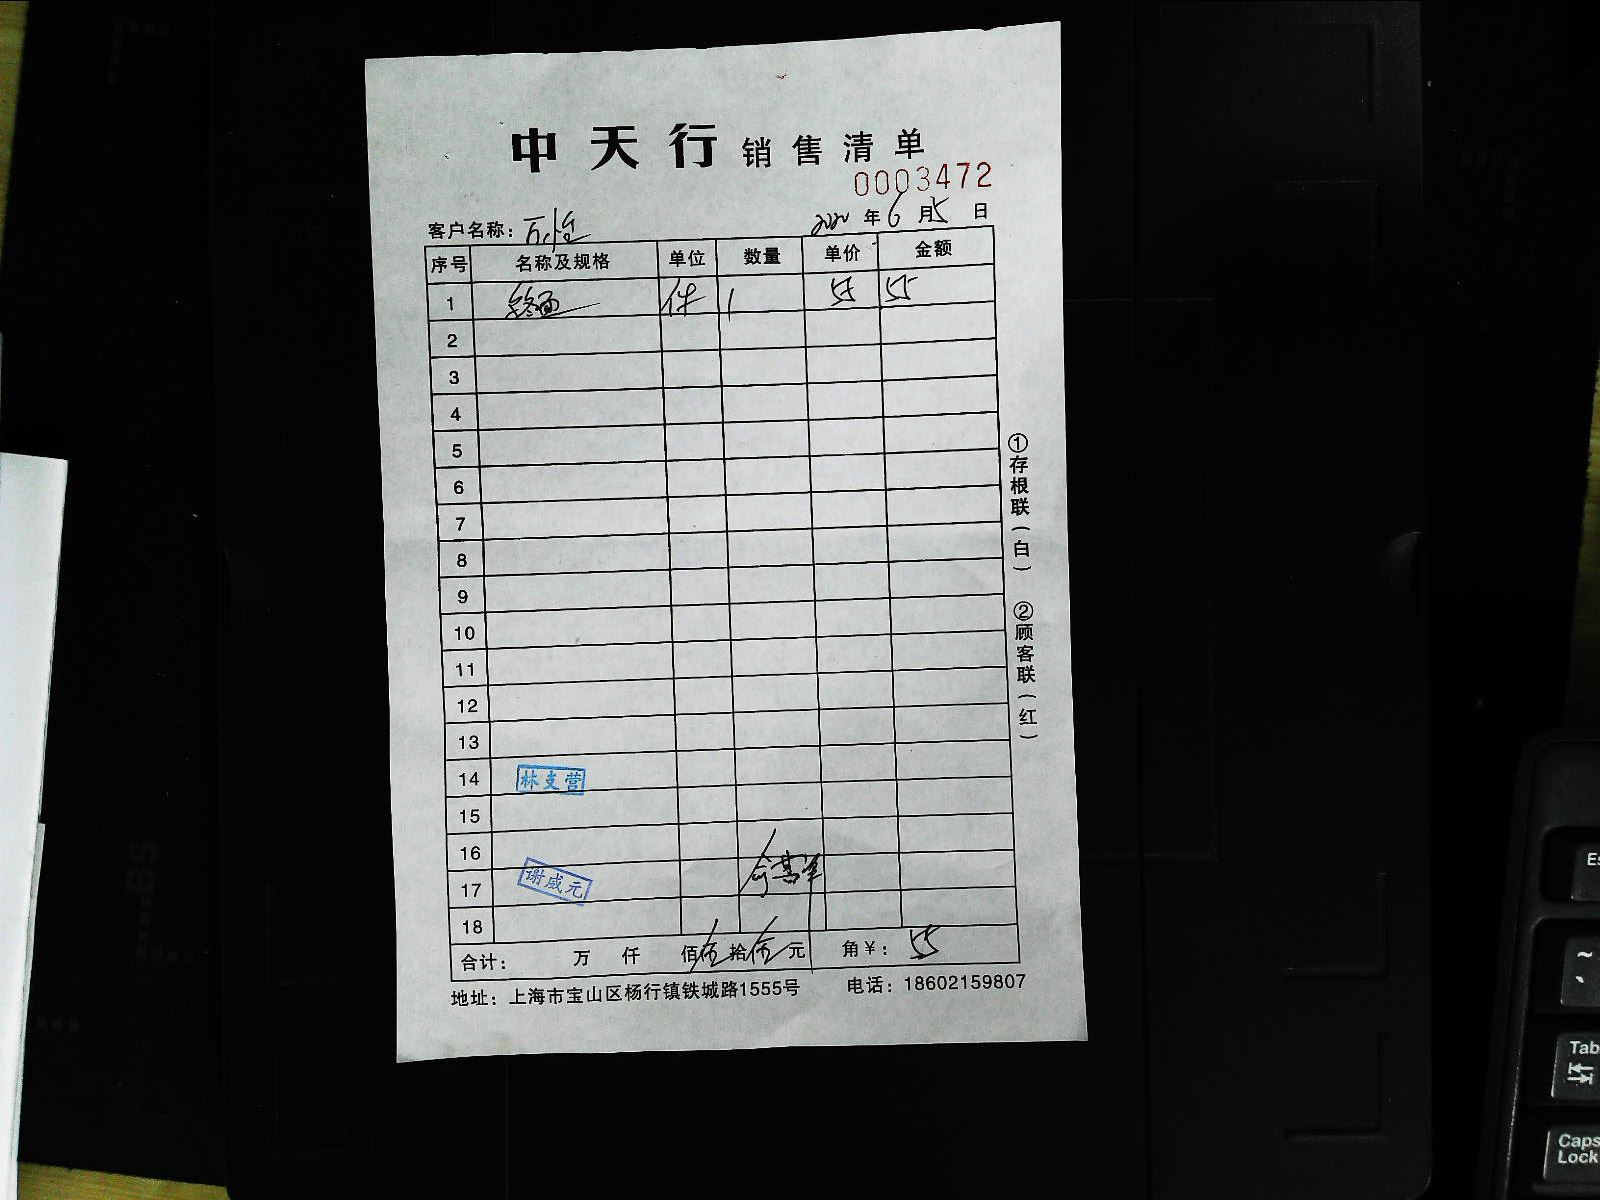 中天行 销售清单
0003472
客户名称： 2020 年 6 月 5 日
序号 名称及规格 单位 数量 单价 金额
1 件 1 55 55
2
3
4
5
6
7
8
9
10
11
12
13
14 林支营
15
16
17 谢威元
18
合计： 万 仟 佰 伍 拾 伍 元 角 ¥： 55
地址：上海市宝山区杨行镇铁城路1555号 电话：18602159807
①存根联（白）
②顾客联（红）
B5
Es
~
Tab
Caps
Lock